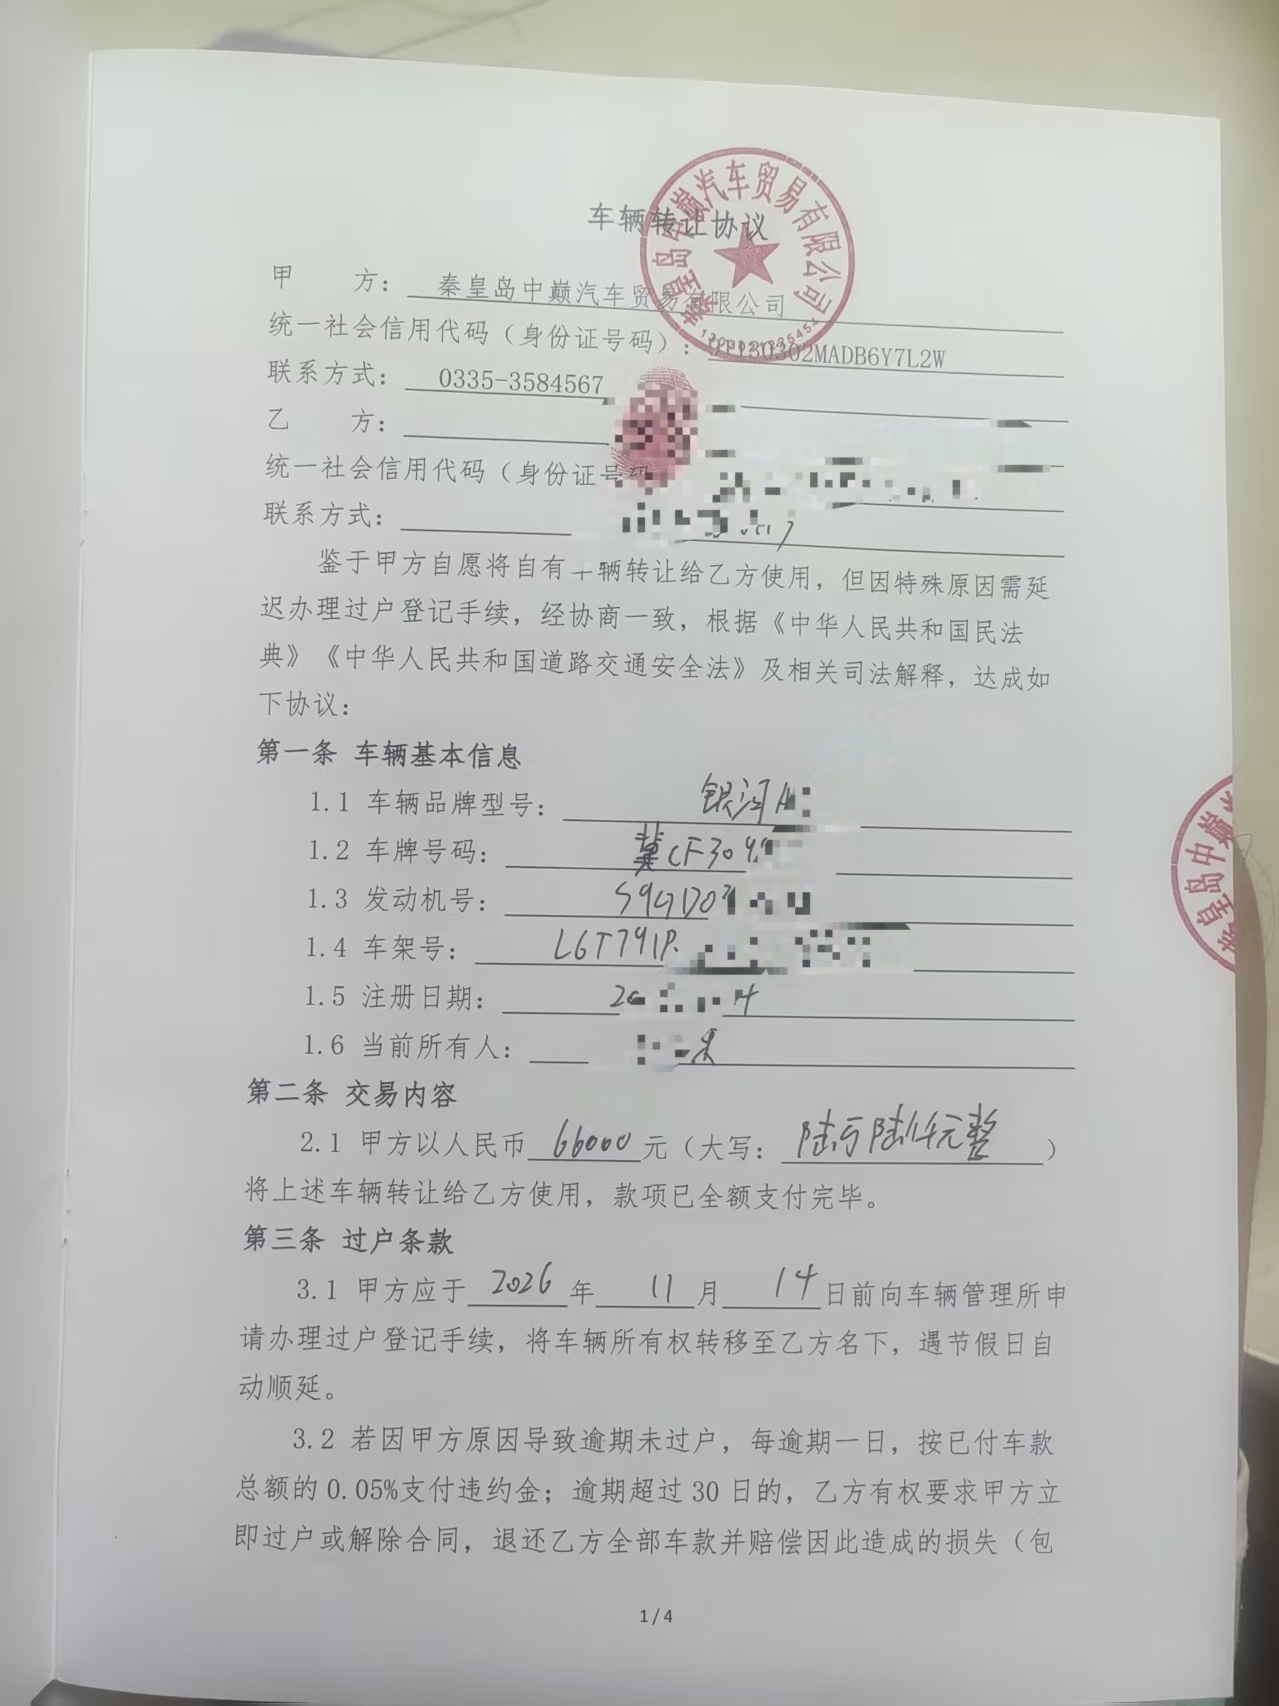 车辆转让协议
甲 方：秦皇岛中巅汽车贸易有限公司
统一社会信用代码（身份证号码）：91130302MADB6Y7L2W
联系方式：0335-3584567
乙 方：
统一社会信用代码（身份证号码
联系方式：
鉴于甲方自愿将自有车辆转让给乙方使用，但因特殊原因需延
迟办理过户登记手续，经协商一致，根据《中华人民共和国民法
典》《中华人民共和国道路交通安全法》及相关司法解释，达成如
下协议：
第一条 车辆基本信息
1.1 车辆品牌型号：银河A
1.2 车牌号码：冀CF309
1.3 发动机号：
1.4 车架号：L6T791P
1.5 注册日期：
1.6 当前所有人：
第二条 交易内容
2.1 甲方以人民币66000元（大写：陆万陆仟元整）
将上述车辆转让给乙方使用，款项已全额支付完毕。
第三条 过户条款
3.1 甲方应于2026年11月14日前向车辆管理所申
请办理过户登记手续，将车辆所有权转移至乙方名下，遇节假日自
动顺延。
3.2 若因甲方原因导致逾期未过户，每逾期一日，按已付车款
总额的0.05%支付违约金；逾期超过30日的，乙方有权要求甲方立
即过户或解除合同，退还乙方全部车款并赔偿因此造成的损失（包
1/4
秦皇岛中巅汽车贸易有限公司
皇岛中巅